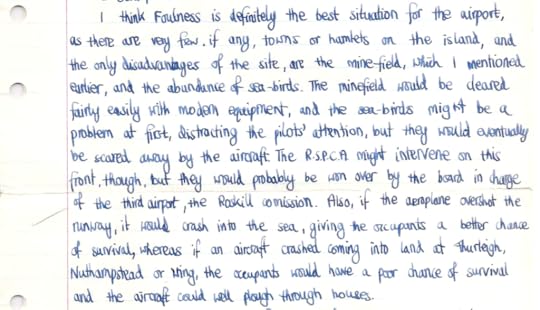 I think Foulness is definitely the best situation for the airport,
as there are very few, if any, towns or hamlets on the island, and
the only disadvantages of the site, are the mine-field, which I mentioned
earlier, and the abundance of sea-birds. The minefield would be cleared
fairly easily with modern equipment, and the sea-birds might be a
problem at first, distracting the pilots' attention, but they would eventually
be scared away by the aircraft The R.S.P.C.A might intervene on this
front, though, but they would probably be won over by the board in charge
of the third airport, the Roskill comission. Also, if the aeroplane overshot the
runway, it would crash into the sea, giving the occupants a better chance
of survival, whereas if an aircraft crashed coming into land at Thurleigh,
Nuthampstead or Wing, the occupants would have a poor chance of survival
and the aircraft could well plough through houses.